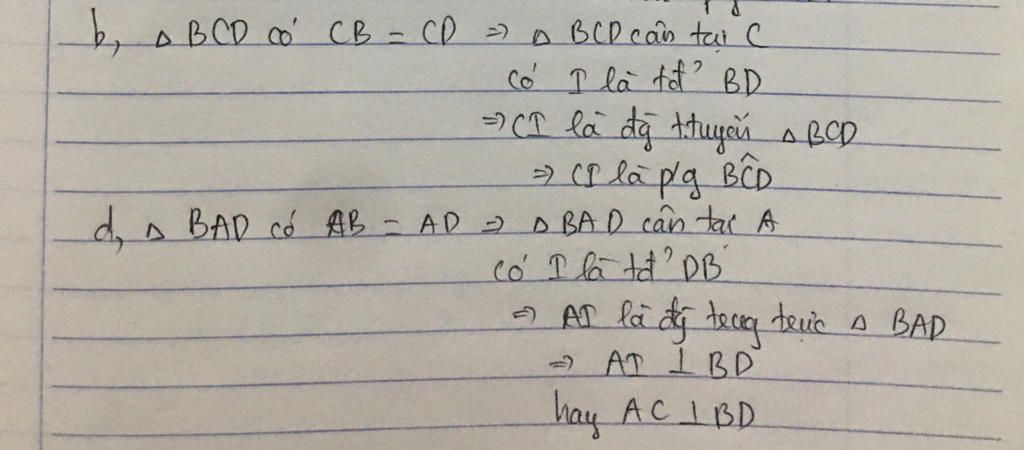 b, △ BCD có CB = CD ⇒ △ BCD cân tại C
có I là tđ' BD
⇒ CI là đg ttuyến △ BCD
⇒ CI là p/g BĈD
d, △ BAD có AB = AD ⇒ △ BAD cân tại A
có I là tđ' DB
⇒ AI là đg trung trực △ BAD
⇒ AI ⊥ BD
hay AC ⊥ BD